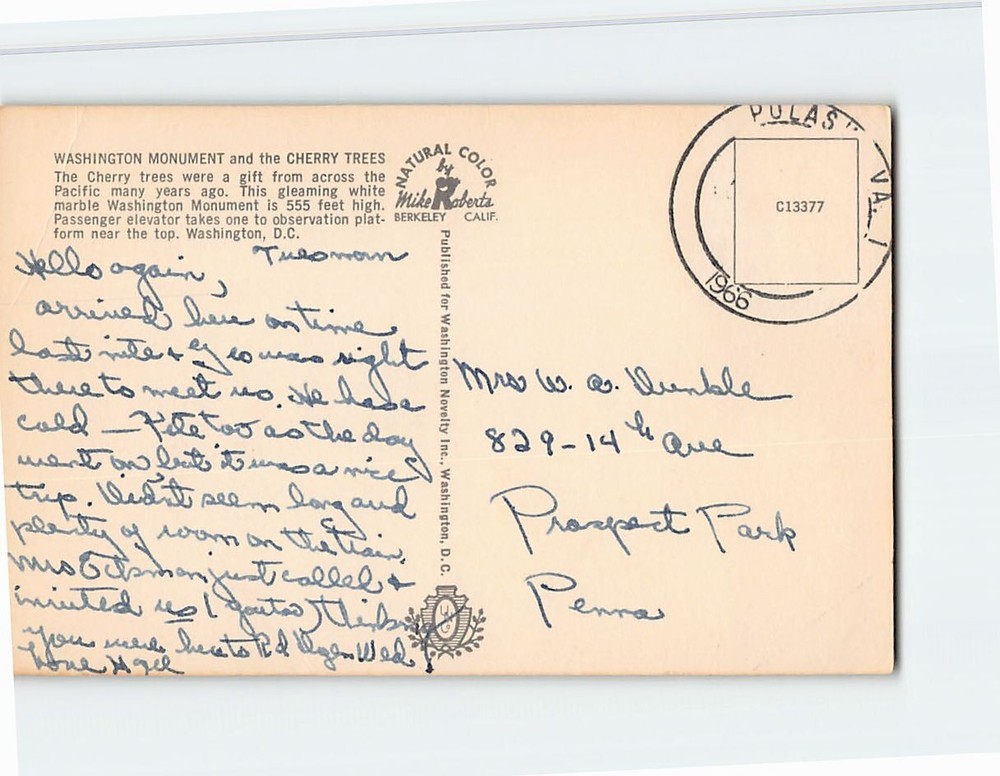 WASHINGTON MONUMENT and the CHERRY TREES
The Cherry trees were a gift from across the
Pacific many years ago. This gleaming white
marble Washington Monument is 555 feet high.
Passenger elevator takes one to observation plat-
form near the top. Washington, D.C.
NATURAL COLOR
by
Mike Roberts
BERKELEY CALIF.
Published for Washington Novelty Inc., Washington, D.C.
PULAS VA.
1966
C13377
Tues morn
Hello again,
arrived here on time
last nite + was right
there to meet us. He has a
cold — Pete too as the day
went on, but it was a nice
trip. Didn't seem long and
plenty of room on the train.
Mrs just called +
invited us (you too) thinking
you were here to Wed.
Love
Mrs W. A. Dunkle
829-14th Ave
Prospect Park
Penna